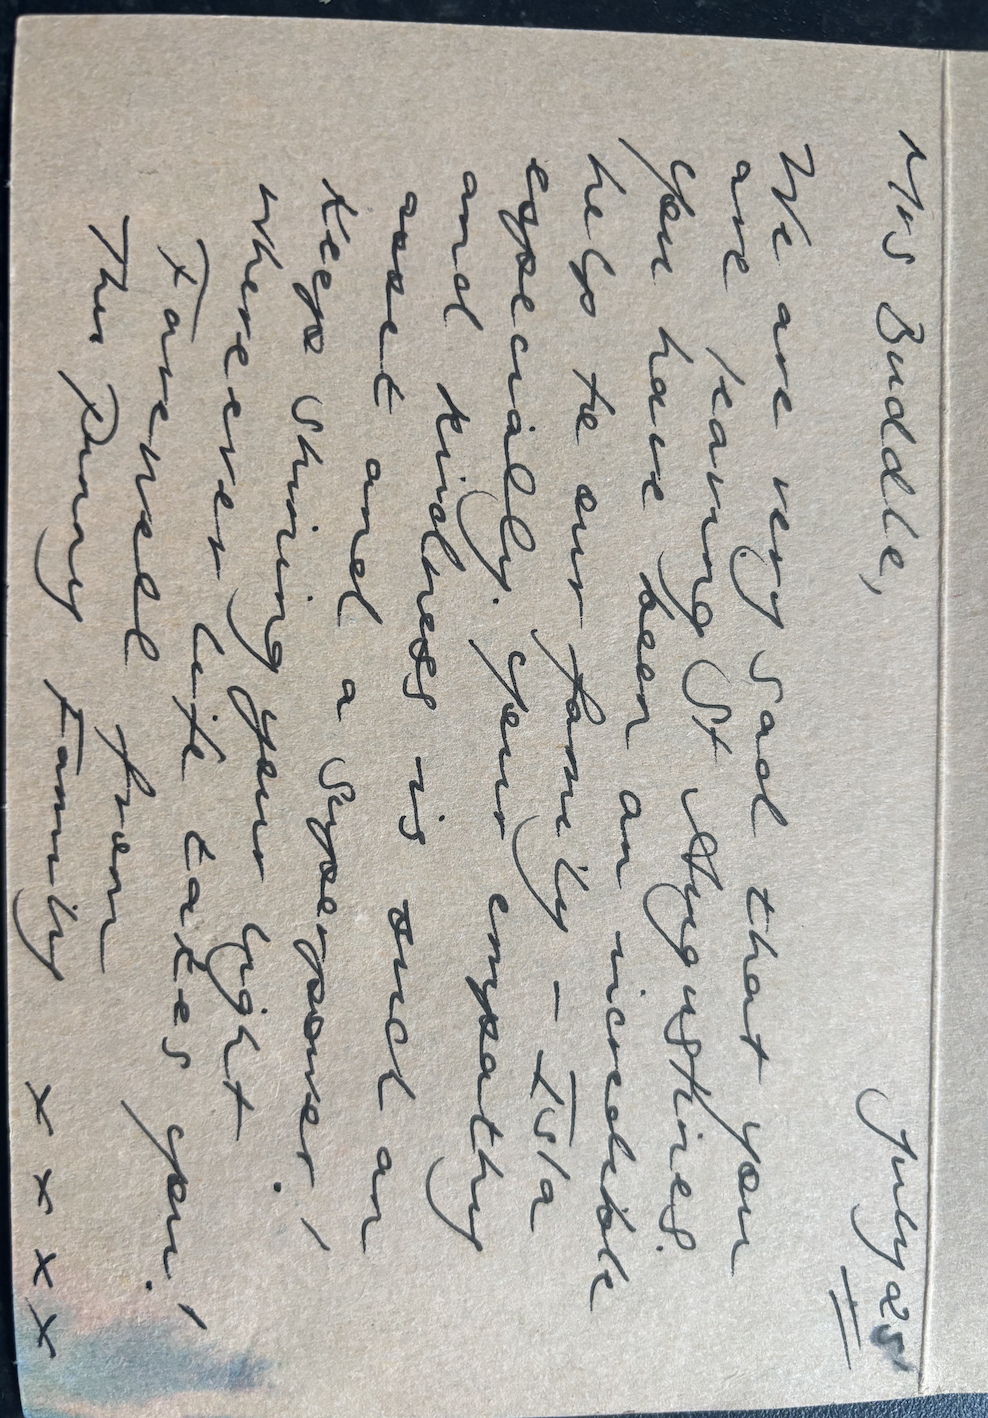 July 25
Mrs Buddle,
We are very sad that you
are leaving St Augustines.
You have been an incredible
help to our family - Isla
especially. Your empathy
and kindness is such an
asset and a superpower!
Keep shining your light
wherever life takes you!
Farewell from
The Family x x x x